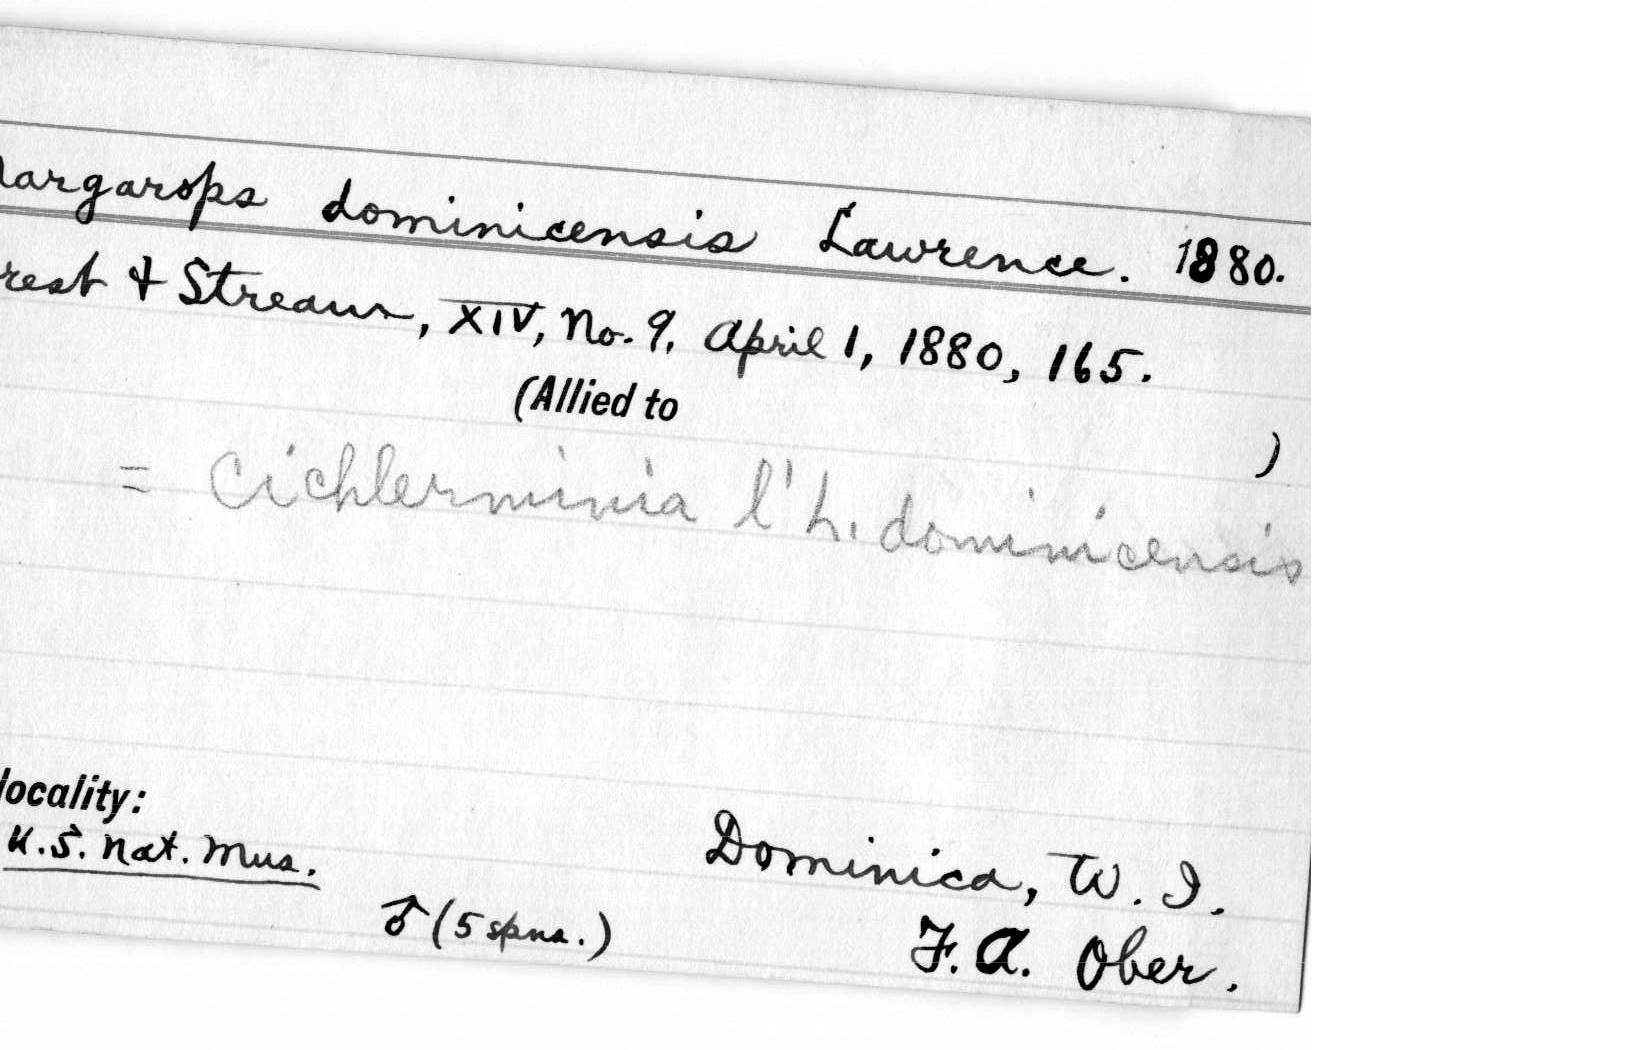 argarops dominicensis Lawrence. 1880.
rest & Stream, XIV, No. 9, April 1, 1880, 165.
(Allied to )
= Cichlerminia l'h. dominicensis
locality:
U.S. Nat. Mus.
Dominica, W. I.
♂ (5 spns.)
F. A. Ober.